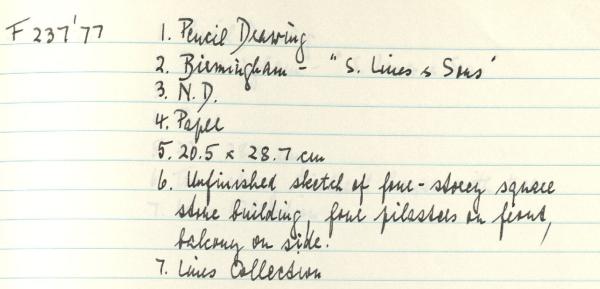 F 237'77 1. Pencil Drawing
2. Birmingham - "S. Lines & Sons'
3. N.D.
4. Paper
5. 20.5 x 28.7 cm
6. Unfinished sketch of four-storey square
stone building, four pilasters on front,
balcony on side.
7. Lines Collection